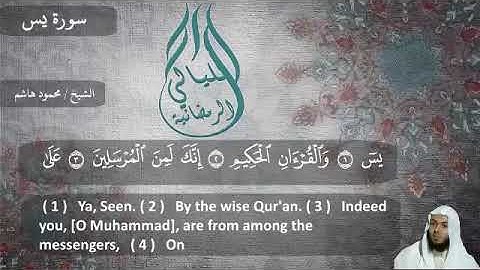 سورة يس
الليالي
الرمضانية
الشيخ / محمود هاشم
يسٓ ۝١ وَٱلْقُرْءَانِ ٱلْحَكِيمِ ۝٢ إِنَّكَ لَمِنَ ٱلْمُرْسَلِينَ ۝٣ عَلَىٰ
( 1 ) Ya, Seen. ( 2 ) By the wise Qur'an. ( 3 ) Indeed
you, [O Muhammad], are from among the
messengers, ( 4 ) On